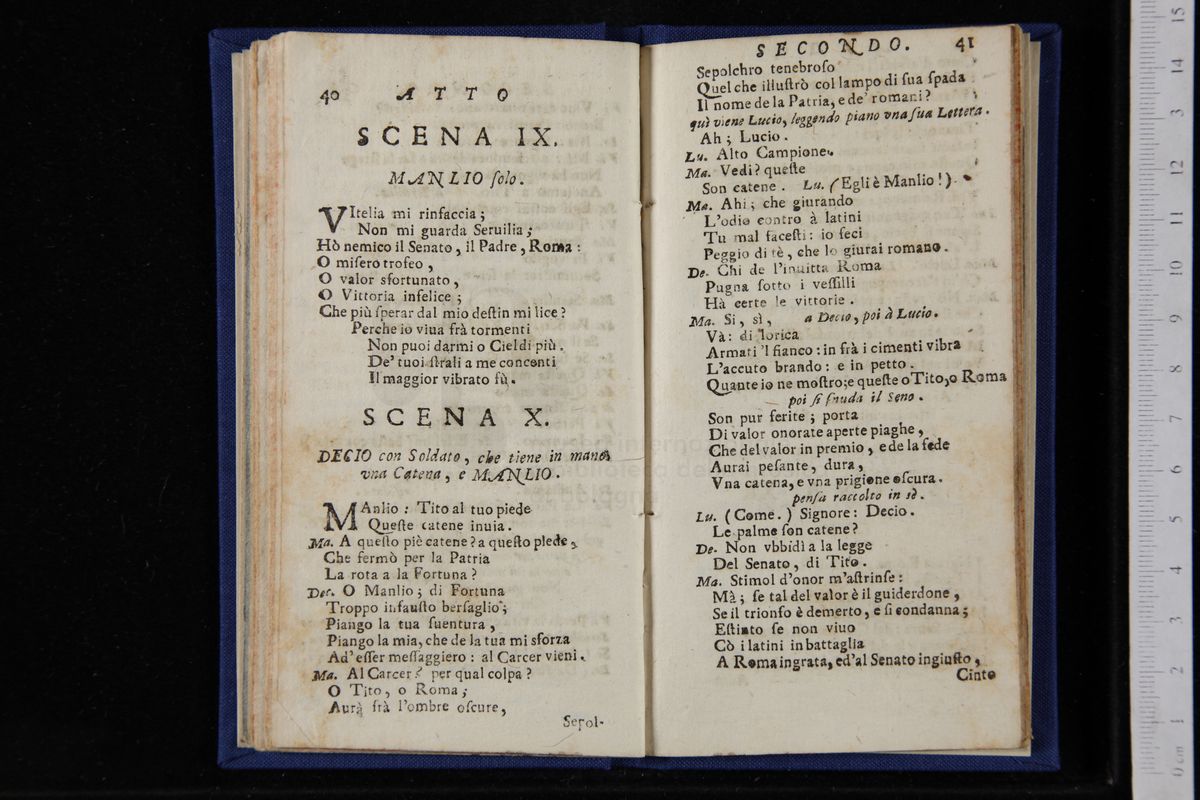 40 ATTO
SCENA IX.
MANLIO ſolo.
VItelia mi rinfaccia;
Non mi guarda Seruilia;
Hò nemico il Senato, il Padre, Roma:
O miſero trofeo,
O valor sfortunato,
O Vittoria infelice;
Che più ſperar dal mio deſtin mi lice?
Perche io viua frà tormenti
Non puoi darmi o Ciel di più.
De' tuoi ſtrali a me concenti
Il maggior vibrato fù.
SCENA X.
DECIO con Soldato, che tiene in mano
vna Catena, e MANLIO.
MAnlio: Tito al tuo piede
Queſte catene inuia.
Ma. A queſto piè catene? a queſto piede,
Che fermò per la Patria
La rota a la Fortuna?
Dec. O Manlio; di Fortuna
Troppo infauſto berſaglio;
Piango la tua ſuentura,
Piango la mia, che de la tua mi sforza
Ad' eſſer meſſaggiero: al Carcer vieni.
Ma. Al Carcer? per qual colpa?
O Tito, o Roma;
Aurà frà l'ombre oſcure,
Sepol-
SECONDO. 41
Sepolchro tenebroſo
Quel che illuſtrò col lampo di ſua ſpada
Il nome de la Patria, e de' romani?
quì viene Lucio, leggendo piano vna ſua Lettera.
Ah; Lucio.
Lu. Alto Campione.
Ma. Vedi? queſte
Son catene. Lu. (Egli è Manlio!).
Ma. Ahi; che giurando
L'odio contro à latini
Tu mal faceſti: io feci
Peggio di tè, che lo giurai romano.
De. Chi de l'inuitta Roma
Pugna ſotto i veſſilli
Hà certe le vittorie.
Ma. Si, sì, a Decio, poi à Lucio.
Và: di lorica
Armati 'l fianco: in frà i cimenti vibra
L'accuto brando: e in petto.
Quante io ne moſtro; e queſte o Tito, o Roma
poi ſi ſnuda il Seno.
Son pur ferite; porta
Di valor onorate aperte piaghe,
Che del valor in premio, e de la fede
Aurai peſante, dura,
Vna catena, e vna prigione oſcura.
penſa raccolto in sè.
Lu. (Come.) Signore: Decio.
Le palme ſon catene?
De. Non vbbidì a la legge
Del Senato, di Tito.
Ma. Stimol d'onor m'aſtrinſe:
Mà; ſe tal del valor è il guiderdone,
Se il trionfo è demerto, e ſi condanna;
Eſtinto ſe non viuo
Cò i latini in battaglia
A Roma ingrata, ed'al Senato ingiuſto,
Cinto